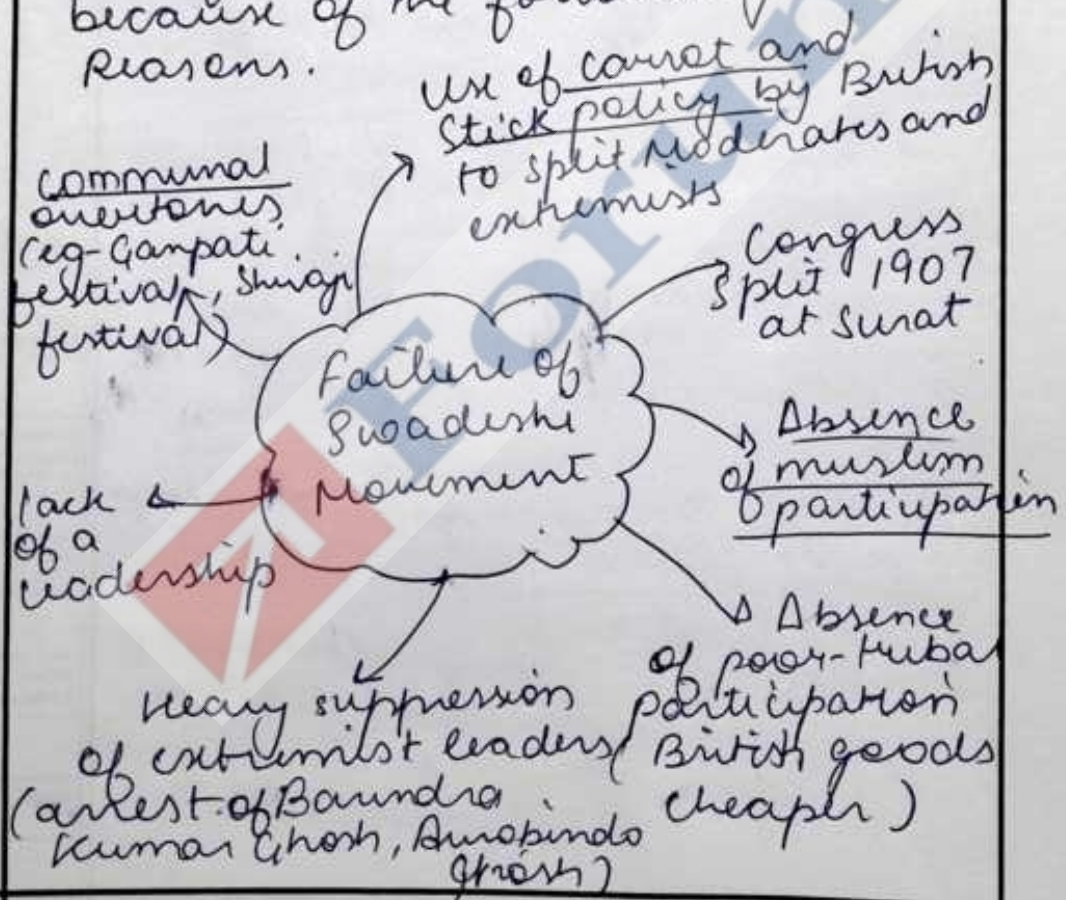 because of the
Reasons.
Use of carrot and
stick policy by British
to split Moderates and
extremists
Communal
overtones
(eg-Ganpati
festival, Shivaji
festival)
Congress
split 1907
at Surat
Failure of
Swadeshi
Movement
Absence
of muslim
participation
lack
of a
leadership
Absence
of poor-tribal
participation
(British goods
cheaper)
Heavy suppression
of extremist leaders
(arrest of Barindra
Kumar Ghosh, Aurobindo
Ghosh)
Forum